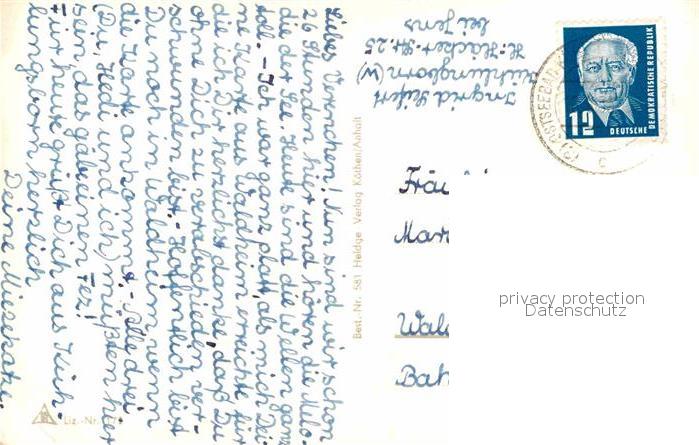 Liebes Verenchen! Nun sind wir schon
26 Stunden hier und hören die Melo-
die der See. Heute sind die Wellen ganz
toll. – Ich war ganz platt, als mich Dei-
ne Karte aus Waldheim erreichte, für
die ich Dir herzlichst danke, daß Du
ohne Dich zu verabschieden ver-
schwunden bist. – Hoffentlich bist
Du noch in Waldheim, wenn
die Karte ankommt. – Alle drei
(Du, Hedi und ich) müßten hier
sein, das gäb einen Fez!
Für heute grüßt Dich aus Küh-
lungsborn herzlich
Deine Miezekatze.
Liz.-Nr.
Best.-Nr. 581 Heldge Verlag Köthen/Anhalt
Ingrid Seifert
Kühlungsborn (W)
H.-Häcker-Str. 25
bei Jens
12
DEUTSCHE
DEMOKRATISCHE REPUBLIK
OSTSEEBAD
c
Fräu
Mar
Wal
Bah
privacy protection
Datenschutz